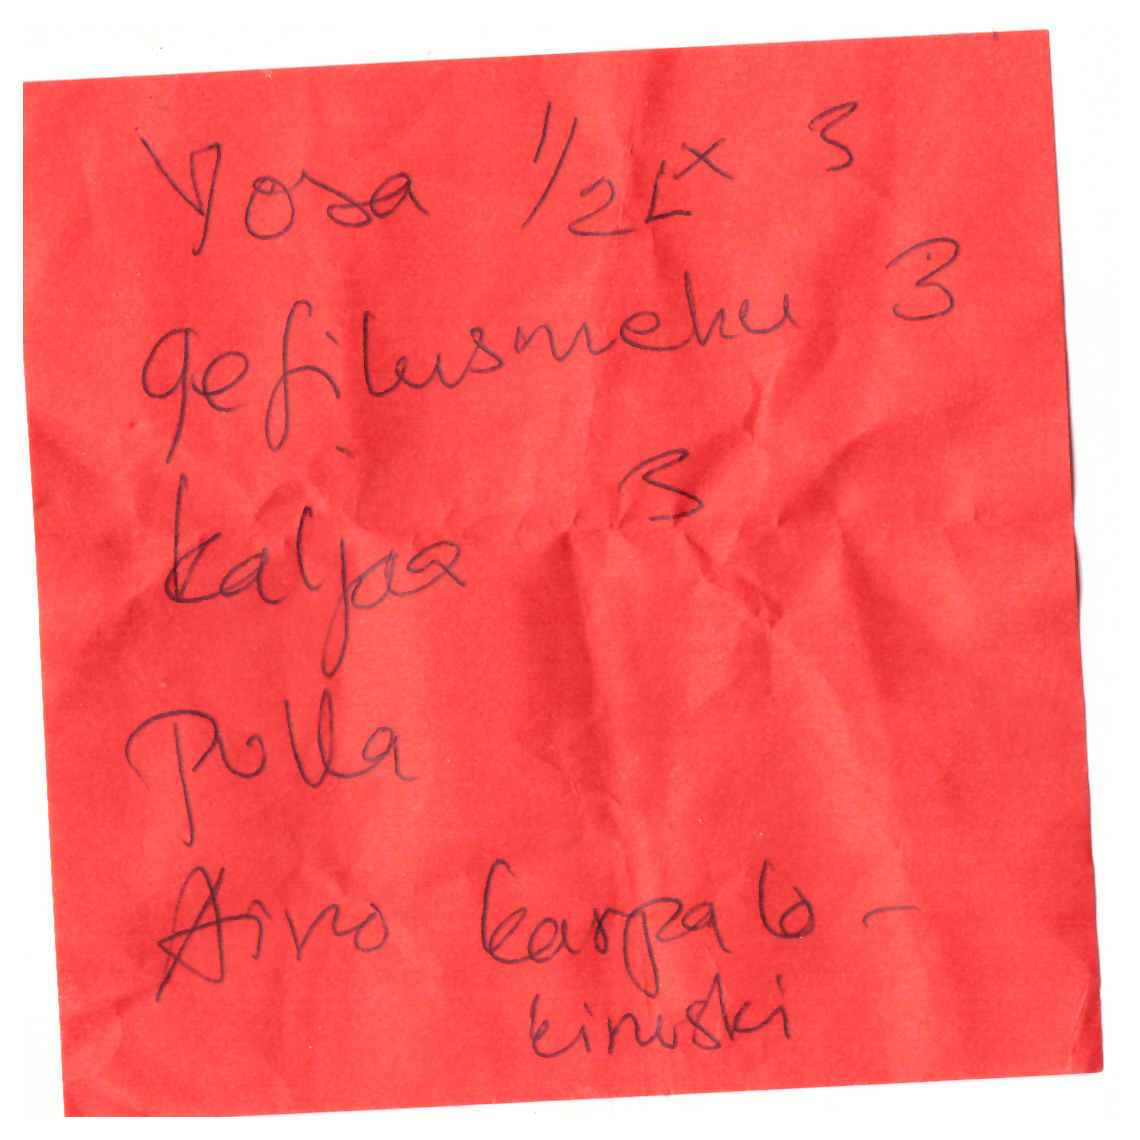 Yosa 1/2L x 3
gefilusmehu 3
kaljaa 3
pulla
Aino karpalo-
kinuski